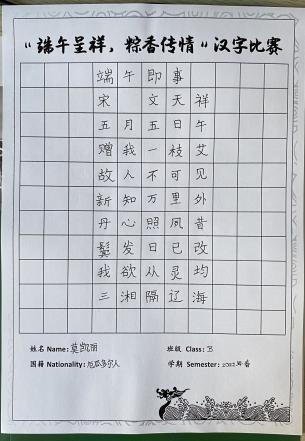 “端午呈祥，粽香传情”汉字比赛
端午即事
宋 文天祥
五月五日午
赠我一枝艾
故人不可见
新知万里外
丹心照夙昔
鬓发日已改
我欲从灵均
三湘隔辽海
姓名 Name: 莫凯丽 班级 Class: B
国籍 Nationality: 厄瓜多尔人 学期 Semester: 2022年春